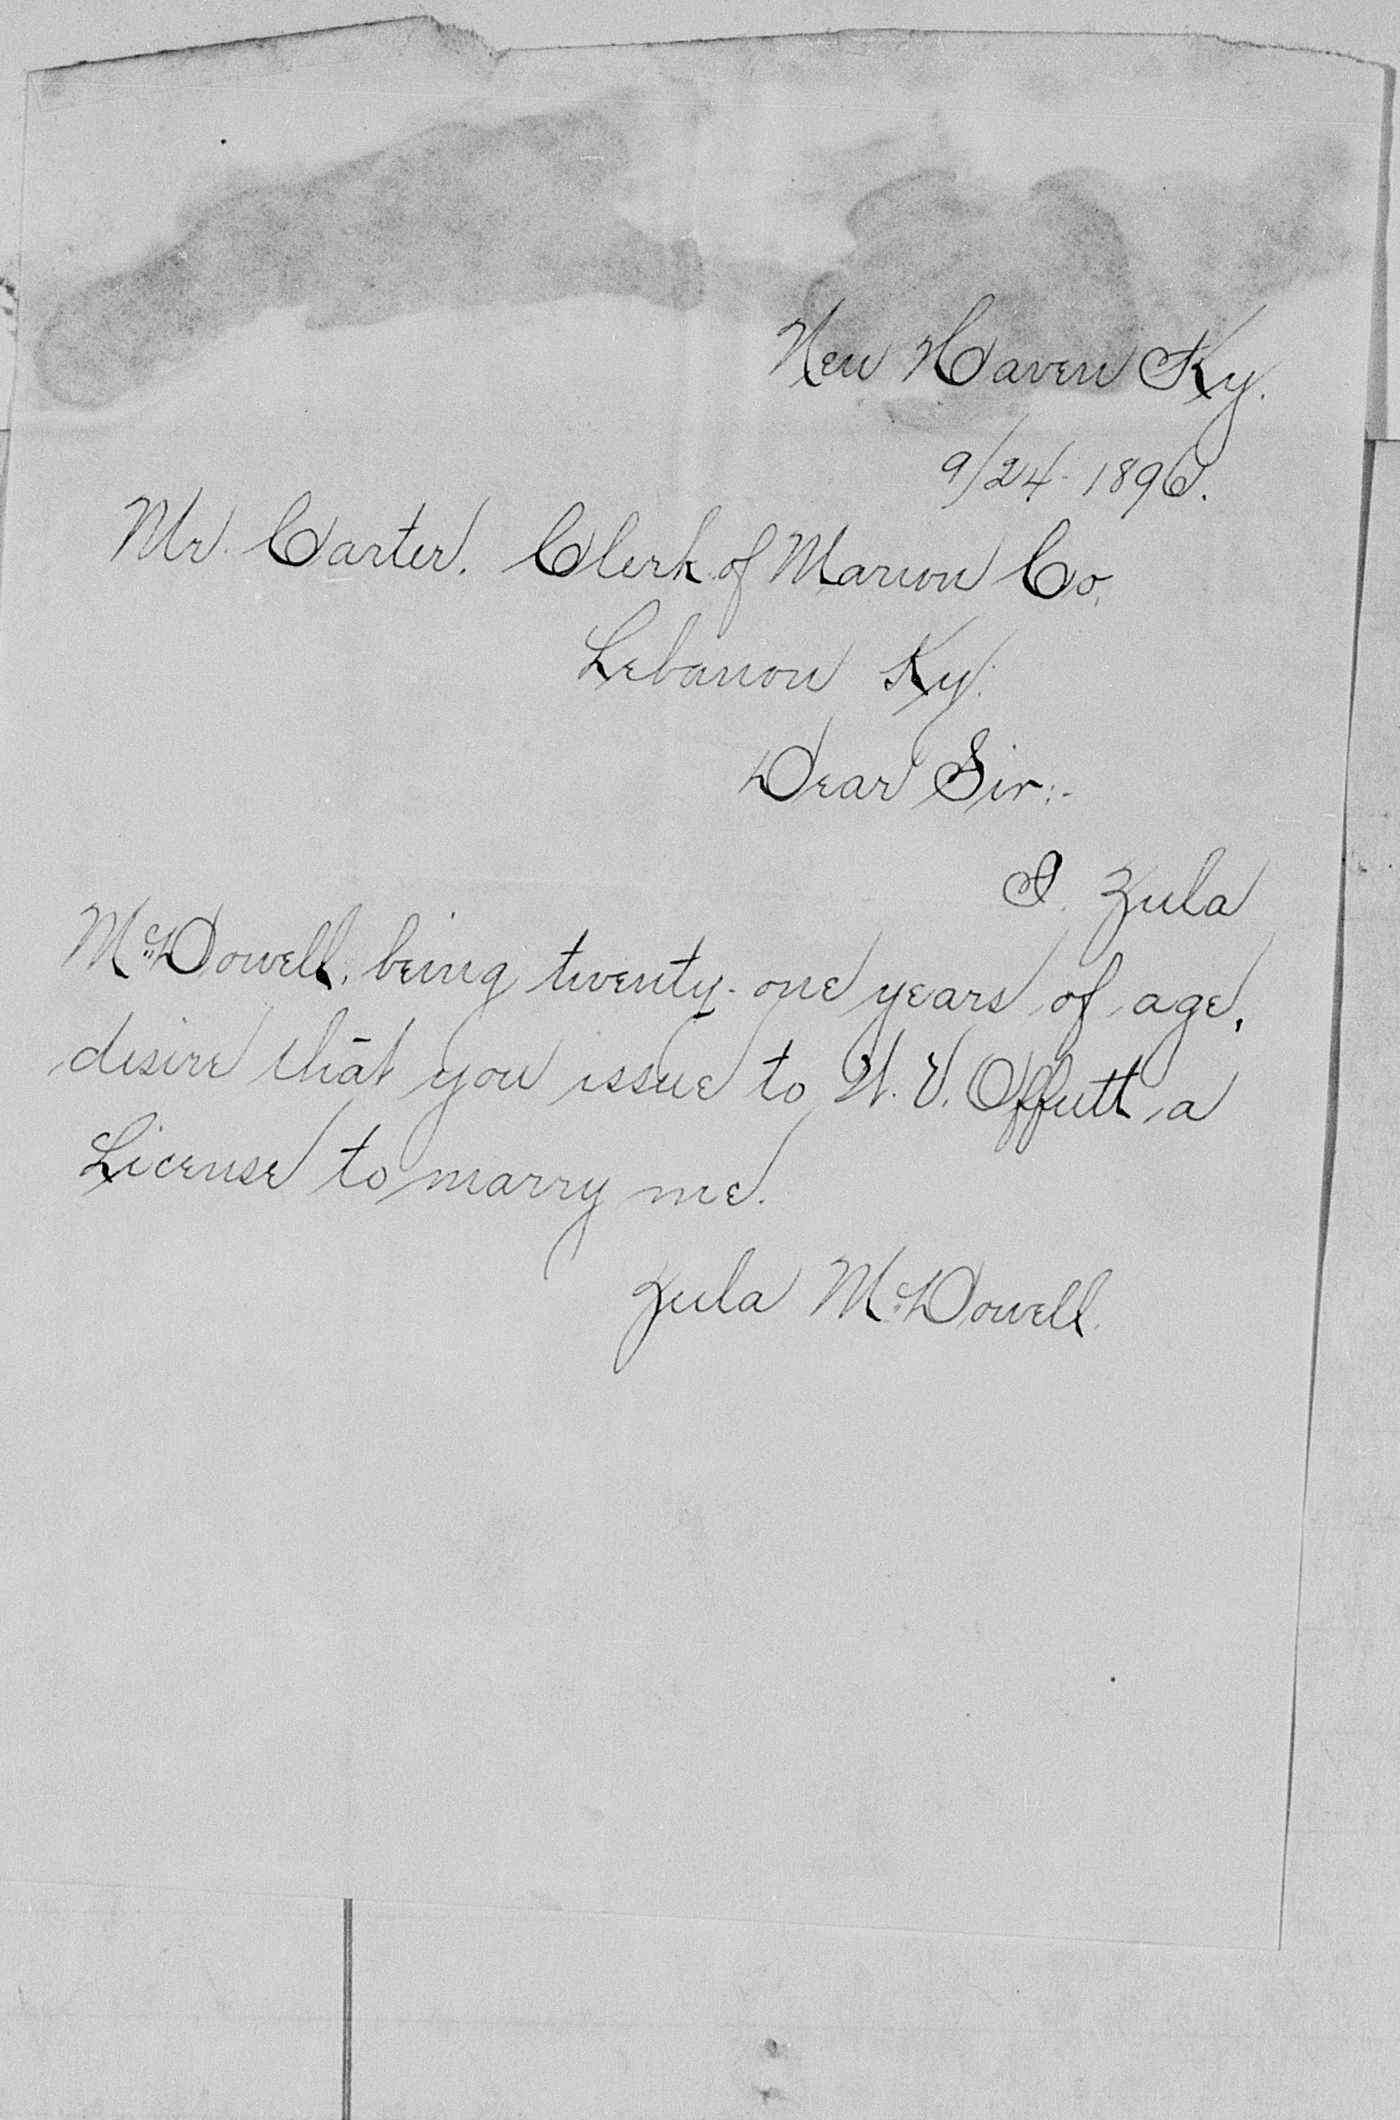 New Haven Ky.
9/24-1896.
Mr. Carter, Clerk of Marion Co.
Lebanon Ky.
Dear Sir:-
I. Zula
McDowell, being twenty-one years of age,
desire that you issue to W. V. Offutt a
License to marry me.
Zula McDowell.